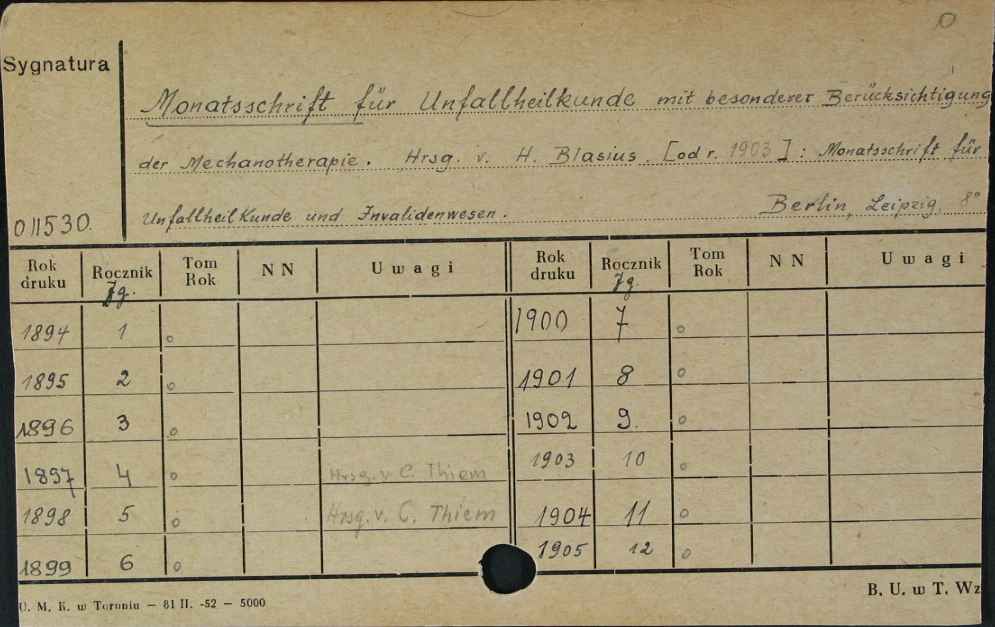 Sygnatura
Monatsschrift für Unfallheilkunde mit besonderer Berücksichtigung
der Mechanotherapie. Hrsg. v. H. Blasius. [od r. 1903]: Monatsschrift für
Unfallheilkunde und Invalidenwesen. Berlin, Leipzig, 8°
011530.
Rok druku Rocznik Jg. Tom Rok N N Uwagi Rok druku Rocznik Jg. Tom Rok N N Uwagi
1894 1 o 1900 7 o
1895 2 o 1901 8 o
1896 3 o 1902 9. o
1897 4 o Hrsg. v. C. Thiem 1903 10 o
1898 5 o Hrsg. v. C. Thiem 1904 11 o
1899 6 o 1905 12 o
U. M. K. w Toruniu — 81 II. -52 — 5000
B. U. w T. Wz